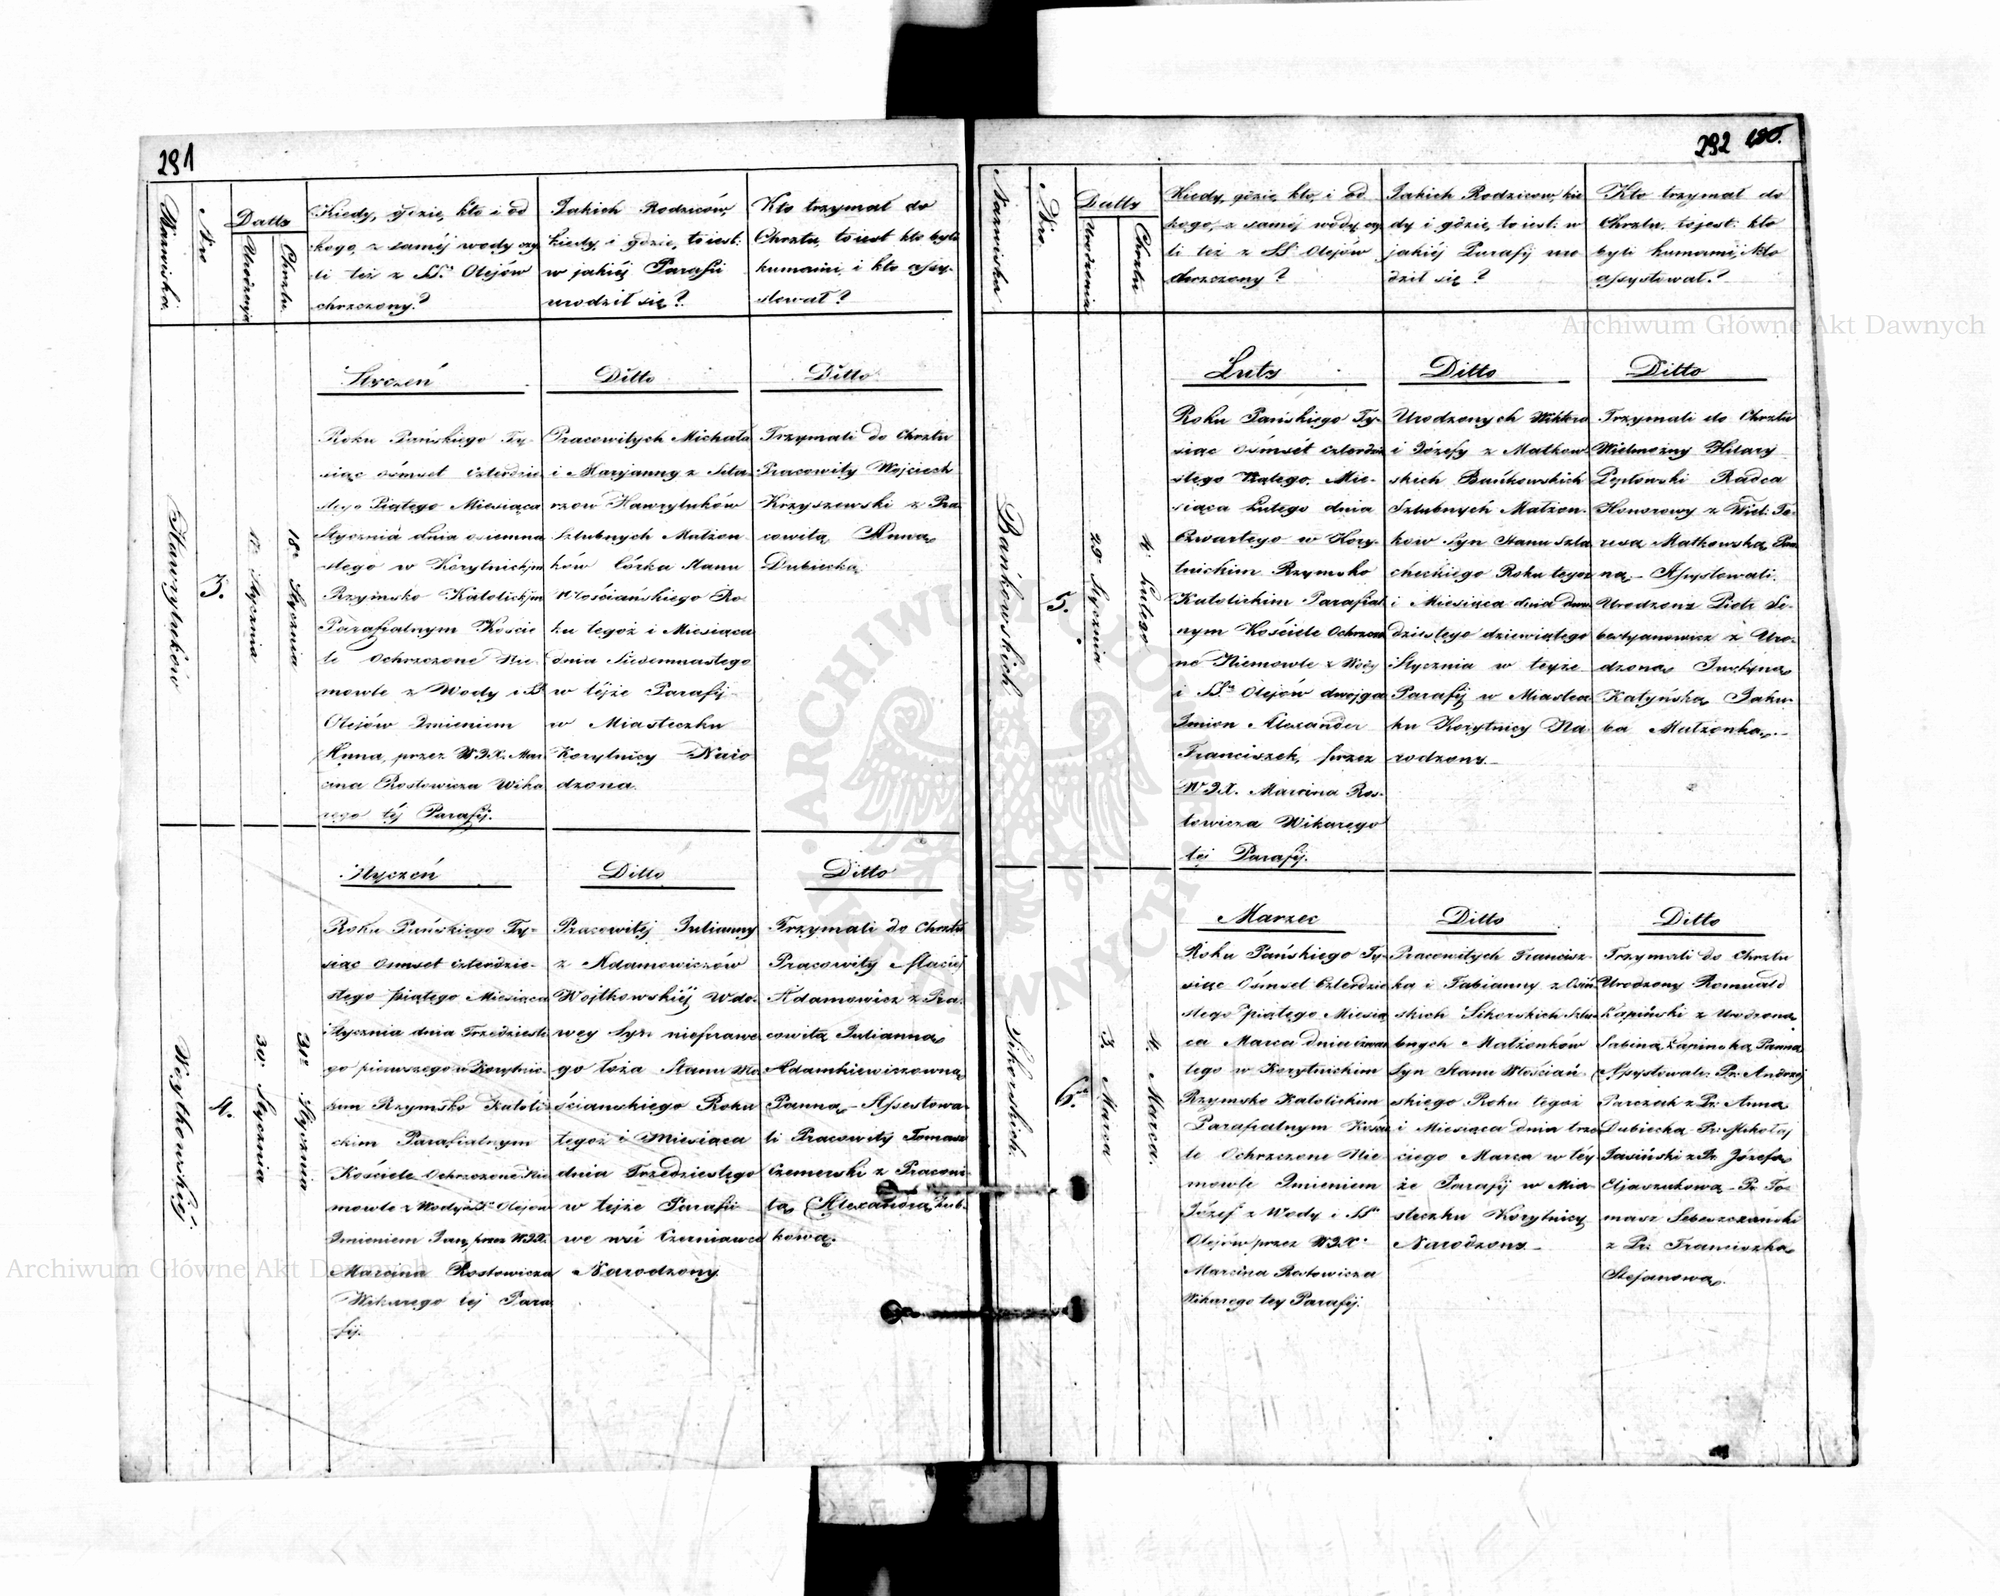 291
Nazwiska
Nro
Datty
Urodzenia
Chrztu
Kiedy, gdzie, kto i od
kogo, z saméj wody czy
li też z SS. Olejów
chrzczony?
Jakich Rodziców,
kiedy, i gdzie, to iest:
w jakiéj Parafii
urodził się?
Kto trzymał do
Chrztu, to iest kto byli
kumami, i kto assy-
stował?
Hawryluków
3.
17 Stycznia
18 Stycznia
Styczeń
Roku Pańskiego Ty-
siąc ośmset czterdzie
stego Piątego Miesiąca
Stycznia dnia osiemna
stego w Korytnickim
Rzymsko Katolickim
Parafialnym Koście
le Ochrzczone Nie-
mowle z Wody i SS
Olejów Imieniem
Anna, przez W.J.X. Mar
cina Rostowicza Wika
rego téj Parafij.
Ditto
Pracowitych Michała
i Maryanny z
Hawryluków
Szlubnych Małżon-
ków Córka Stanu
Włościańskiego Ro-
ku tegoż i Miesiąca
dnia Siedemnastego
w téjże Parafij
w Miasteczku
Korytnicy Naro
dzona.
Ditto
Trzymali do Chrztu
Pracowity Wojciech
Krzyszewski z Pra
cowitą Anną
Dubiecką
Wojtkowskiéj
4.
30. Stycznia
31 Stycznia
Styczeń
Roku Pańskiego Ty-
siąc Ośmset czterdzie-
stego piątego Miesiąca
Stycznia dnia Trzydzieste
go pierwszego w Korytnic-
kim Rzymsko Katoli-
ckim Parafialnym
Kościele Ochrzczone Nie
mowle z Wody i SS. Olejów
Imieniem Jan, przez W.J.X.
Marcina Rostowicza
Wikarego téj Para
fij.
Ditto
Pracowitéj Julianny
z Adamowiczów
Wojtkowskiéj Wdo-
wey Syn nieprawe
go łoża Stanu Wło
ściańskiego Roku
tegoż i Miesiąca
dnia Trzydziestego
w tejże Parafii
we wsi Czerniawce
Narodzony
Ditto
Trzymali do Chrztu
Pracowity Maciej
Adamowicz z Pra-
cowitą Julianną
Adamkiewiczowną
Panną - Assestowa
li Pracowity Tomasz
Czemerski z Pracowi
tą Alexandrą Zub-
kową.
292
Nazwiska
Nro
Datty
Urodzenia
Chrztu
Kiedy, gdzie, kto, i od
kogo, z samej wody, czy
li też z SS. Olejów
chrzczony?
Jakich Rodziców, kie
dy i gdzie, to iest: w
jakiéj Parafij uro
dził się?
Kto trzymał do
Chrztu, to jest kto
byli kumami, i kto
assystował?
Bańkowskich
5.
29 Stycznia
4. Lutego
Luty
Roku Pańskiego Ty-
siąc ośmset czterdzie
stego Piątego, Mie-
siąca Lutego dnia
Czwartego w Kory-
tnickim Rzymsko
Katolickim Parafial-
nym Kościele Ochrzczo
ne Niemowle z Wody
i SS. Olejów dwojga
Imion Alexander
Franciszek, przez
W.J.X. Marcina Ros-
towicza Wikarego
téj Parafij.
Ditto
Urodzonych Wiktora
i Józefy z Małkow-
skich Bańkowskich
Szlubnych Małżon-
ków Syn Stanu Szla
checkiego Roku tegoż
i Miesiąca dnia dwu
dziestego dziewiątego
Stycznia w teyże
Parafij w Miastecz
ku Korytnicy Na-
rodzony.
Ditto
Trzymali do Chrztu
Wielmożny Hilary
Radca
Honorowy z Wiel: Te-
resą Małkowską Pan
ną - Assystowali
Urodzony Piotr Se-
bestyanowicz z Uro-
dzoną Justyną
Katyńską Jaku-
ba Małżonką.
Sikorskich.
6.
3. Marca
4. Marca.
Marzec
Roku Pańskiego Ty-
siąc Ośmset Czterdzie
stego piątego Miesią
ca Marca dnia czwar
tego w Korytnickim
Rzymsko Katolickim
Parafialnym Koście
le Ochrzczone Nie
mowle Imieniem
Józef z Wody i SS.
Olejów przez W.J.X.
Marcina Rostowicza
Wikarego tey Parafij.
Ditto
Pracowitych Francisz-
ka i Fabianny z
Sikorskich Szlu-
bnych Małżonków
Syn Stanu Włościań-
skiego Roku tegoż
i Miesiąca dnia trze
ciego Marca w téy
że Parafij w Mia
steczku Korytnicy
Narodzony
Ditto
Trzymali do Chrztu
Urodzony Romuald
Łapiński z Urodzoną
Sabiną Łapińską Panną
Assystowali Pr. Andrzej
Parczuk z Pr. Anną
Dubiecką Pr. Mikołaj
Jasiński z Pr. Józefą
Eljaszukową - Pr. To-
masz Sebeszczański
z Pr. Franciszką
Stefanową.
Archiwum Główne Akt Dawnych
Archiwum Główne Akt Dawnych